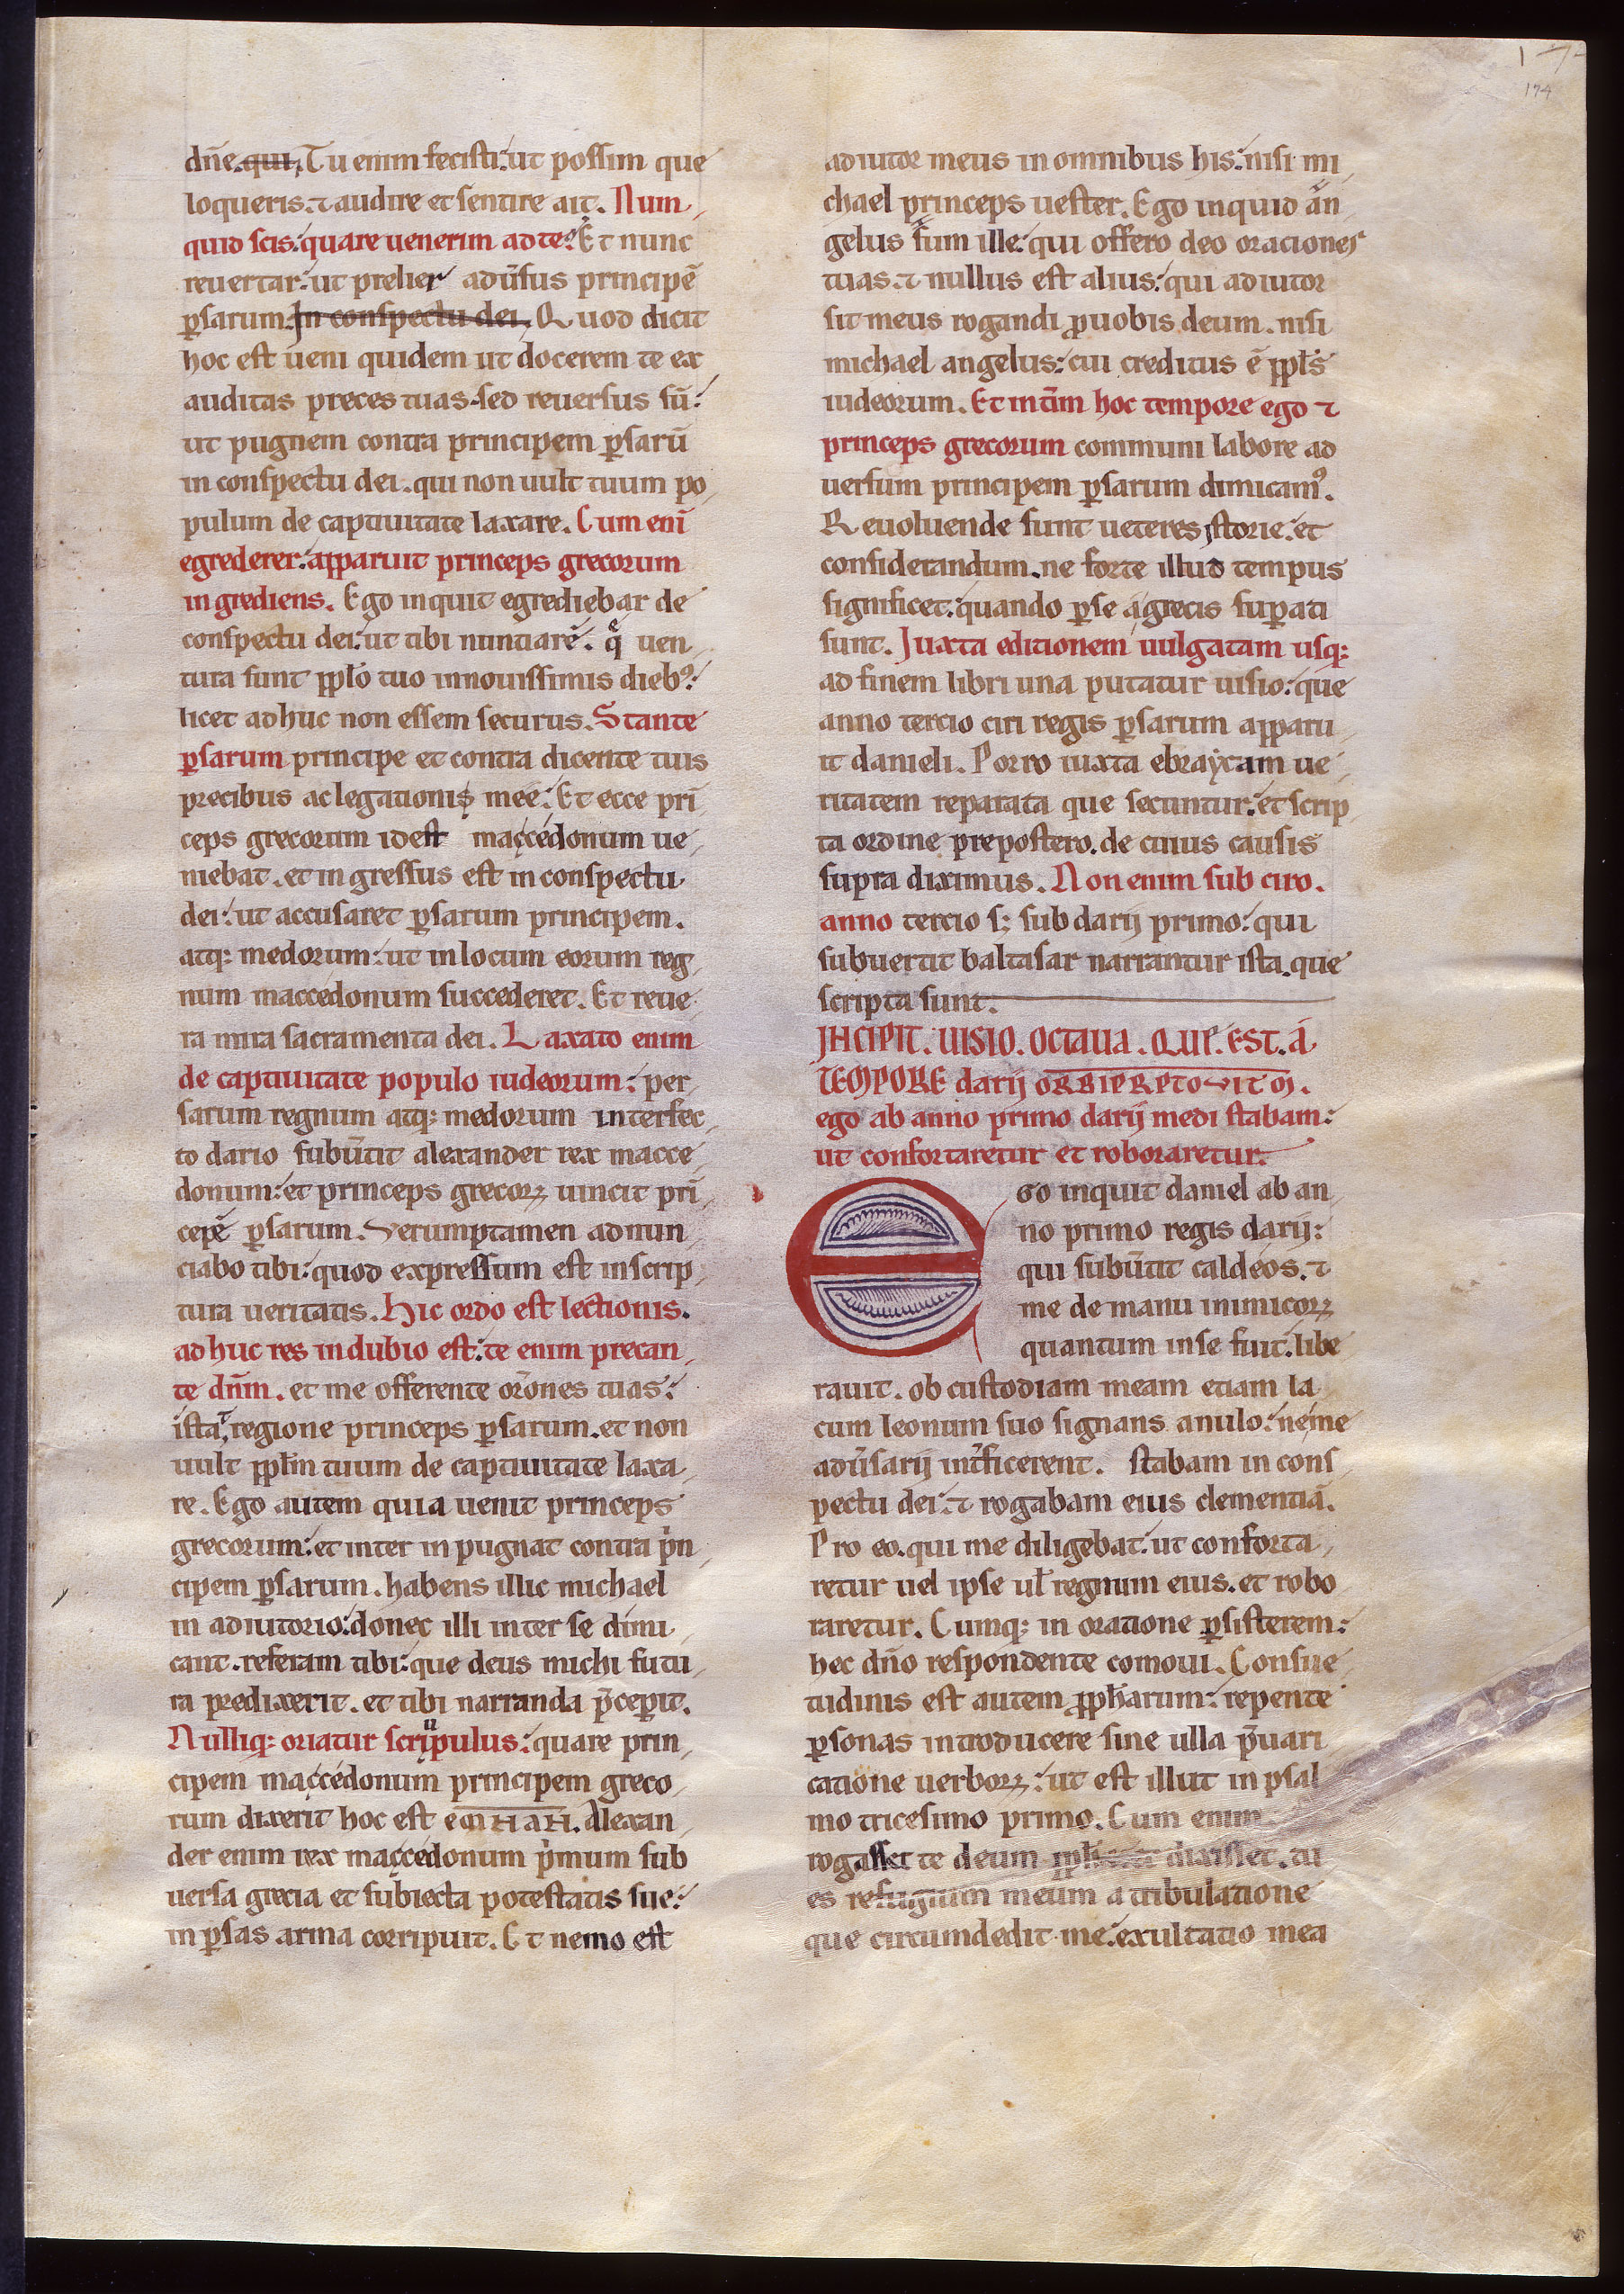 174
dn̄e. qui. Tu enim fecisti: ut possim que
loqueris. ⁊ audire et sentire ait. Num
quid scis: quare uenerim ad te? Et nunc
reuertar: ut prelier adũsus principē
ꝑsarum. In conspectu dei. Quod dicit
hoc est ueni quidem ut docerem te ex
auditas preces tuas. sed reuersus sū:
ut pugnem contra principem ꝑsarū
in conspectu dei. qui non uult tuum po
pulum de captiuitate laxare. Cum eni
egrederer: apparuit princeps grecorum
ingrediens. Ego inquit egrediebar de
conspectu dei: ut tibi nuntiarē. q̄ uen
tura sunt ppl̄o tuo in nouissimis dieb⁹:
licet adhuc non essem securus. Stante
ꝑsarum principe et contra dicente tuis
precibus ac legationis mee: Et ecce prī
ceps grecorum id est maccedonum ue
niebat. et ingressus est in conspectu
dei: ut accusaret ꝑsarum principem.
atq; medorum: ut in locum eorum reg
num maccedonum succederet. Et reue
ra mira sacramenta dei. Laxato enim
de captiuitate populo iudeorum: per
sarum regnum atq; medorum interfec
to dario subũtit alexander rex macce
donum: et princeps grecoꝝ uincit prī
cepē ꝑsarum. Verumptamen adnun
ciabo tibi: quod expressum est in scrip
tura ueritatis. Hic ordo est lectionis.
adhuc res in dubio est: te enim precan
te dn̄m. et me offerente or̄ones tuas:
ista regione princeps ꝑsarum. et non
uult ppl̄m tuum de captiuitate laxa
re. Ego autem quia uenit princeps
grecorum: et inter in pugnat contra pn
cipem ꝑsarum. habens illic michael
in adiutorio: donec illi inter se dimi
cant. referam tibi: que deus michi futu
ra predixerit. et tibi narranda p̄cepit.
Nulliq; oriatur scripulus: quare prin
cipem maccedonum principem greco
rum dixerit hoc est Alexan
der enim rex maccedonum pͥmum sub
uersa grecia et subiecta potestatis sue:
in ꝑsas arma corripuit. Et nemo est
adiutor meus in omnibus his: nisi mi
chael princeps uester. Ego inquid an
gelus sum ille: qui offero deo oraciones
tuas. ⁊ nullus est alius: qui adiutor
sit meus rogandi ꝓ uobis deum. nisi
michael angelus: cui creditus ē ppl̄s
iudeorum. Et int̄im hoc tempore ego ⁊
princeps grecorum communi labore ad
uersum principem ꝑsarum dimicam⁹.
Reuoluende sunt ueteres storie: et
considerandum. ne forte illud tempus
significet: quando ꝑse a grecis suꝑati
sunt. Juxta editionem uulgatam usq;
ad finem libri una putatur uisio: que
anno tercio ciri regis ꝑsarum apparu
it danieli. Porro iuxta ebraycam ue
ritatem reparata que secuntur: et scrip
ta ordine prepostero. de cuius causis
supra diximus. Non enim sub ciro.
anno tercio s; sub darij primo: qui
subuertit baltasar narrantur ista. que
scripta sunt.
INCIPIT. UISIO. OCTAUA. QUE. EST. A
TEMPORE darij
ego ab anno primo darij medi stabam:
ut confortaretur et roboraretur.
Ego inquit daniel ab an
no primo regis darij:
qui subũtit caldeos. ⁊
me de manu inimicoꝝ
quantum in se fuit. libe
rauit. ob custodiam meam etiam la
cum leonum suo signans anulo: ne me
adũsarij int̄ficerent. stabam in cons
pectu dei: ⁊ rogabam eius clementiā.
Pro eo. qui me diligebat: ut conforta
retur uel ipse ul̄ regnum eius. et robo
raretur. Cumq; in oratione ꝑsisterem:
hec dn̄o respondente comoui. Consue
tudinis est autem ꝓph̄arum: repente
ꝑsonas introducere sine ulla p̄uari
catione uerboꝝ: ut est illut in psal
mo tricesimo primo. Cum enim
rogasset te deum ⁊ dixisset. tu
es refugium meum a tribulatione
que circumdedit me: exultatio mea